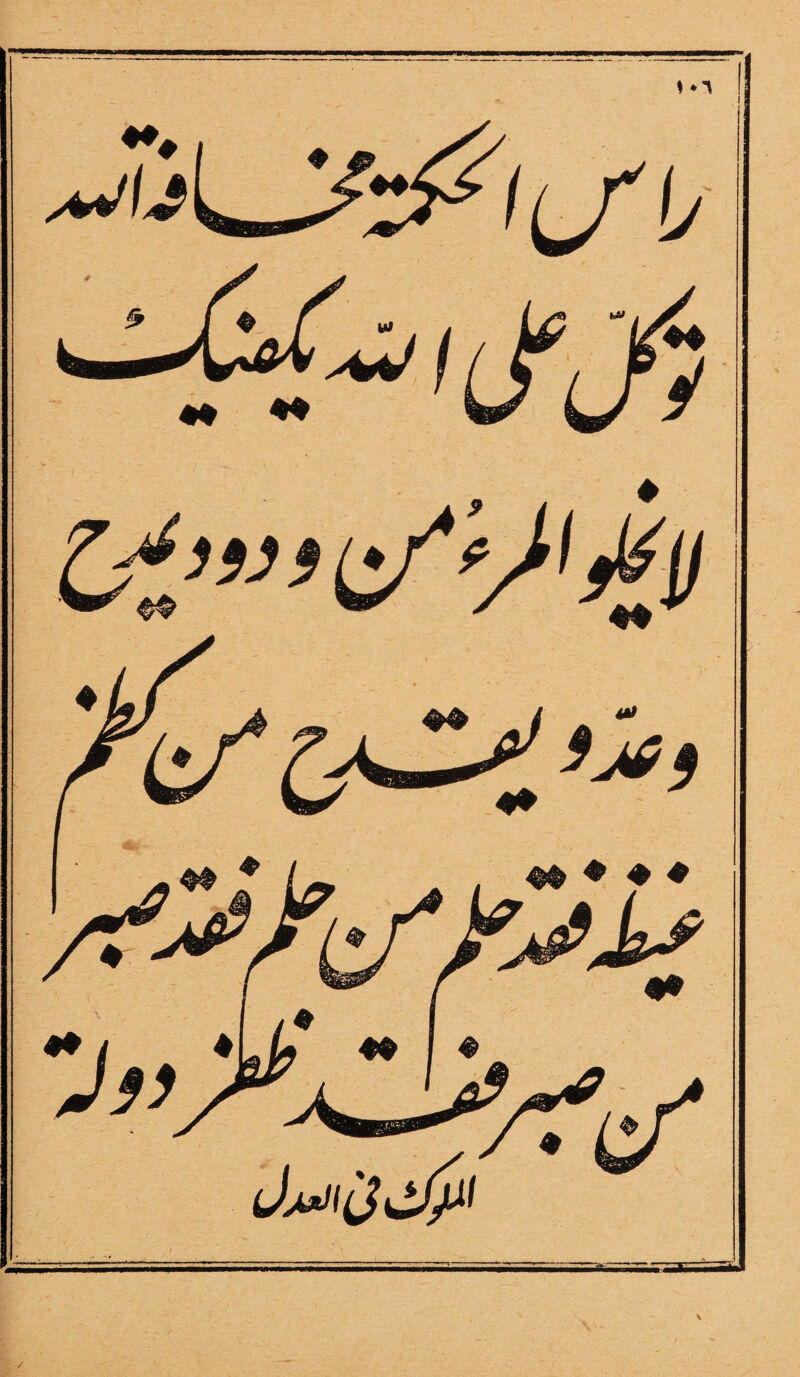 ١٠٦
راس الحكمة مخافة الله
توكلّ على الله يكفيك
لا يخلو المرءُ من ودود يمدح
وعدّو يقدح من كظم
غيظه فقد حلم من حلم فقد صبر
من صبر فقد ظفر دولة
الملوك في العدل